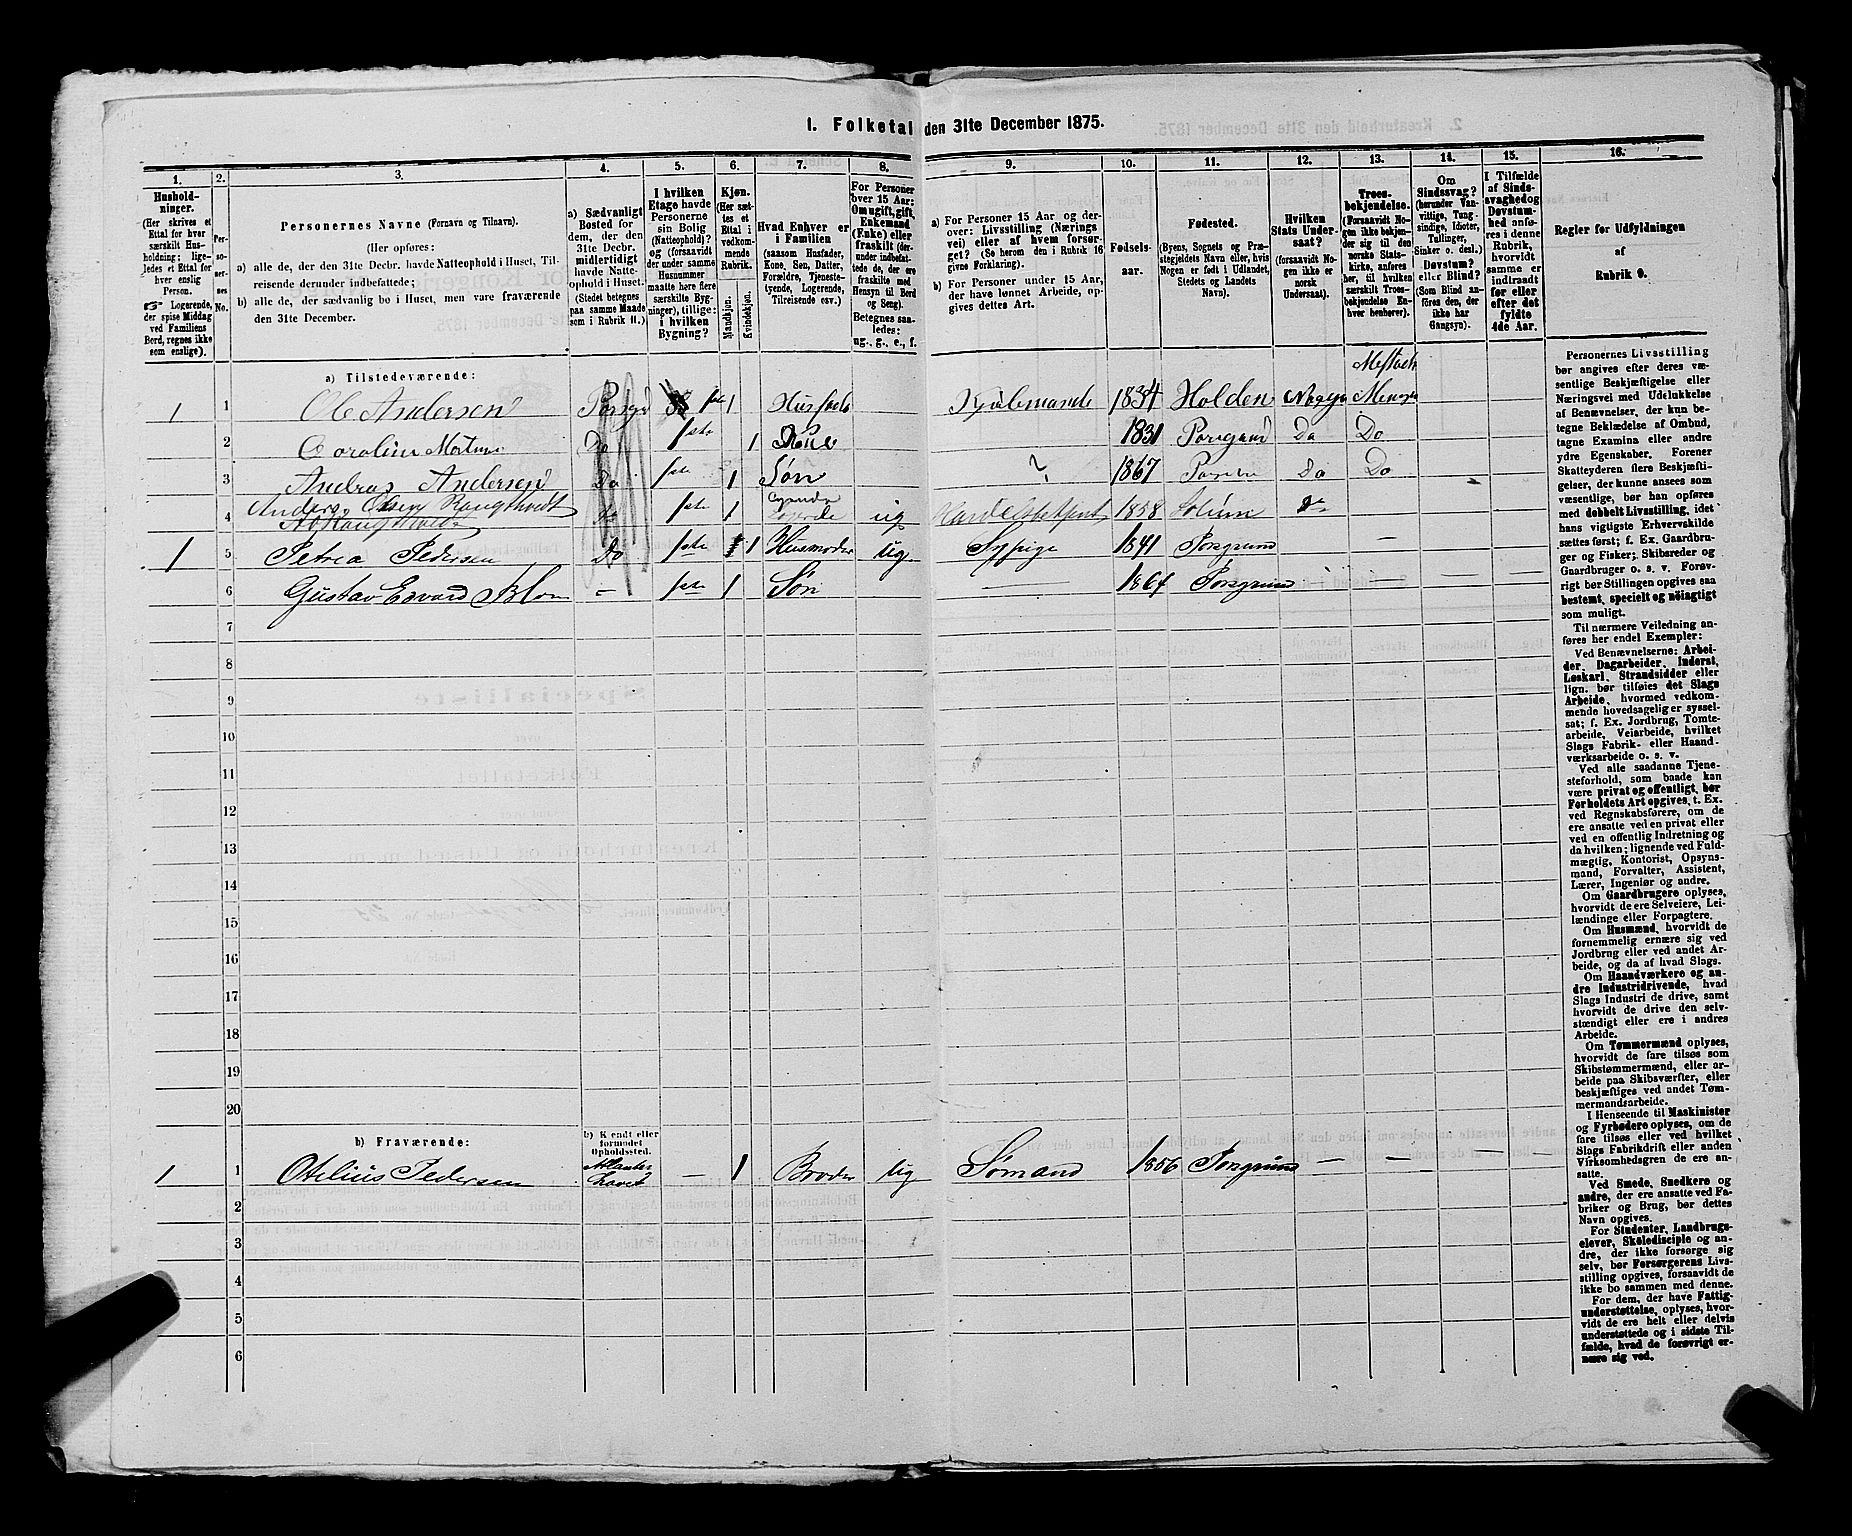 1. Folketal den 31te December 1875.
1. 2. 3. 4. 5. 6. 7. 8. 9. 10. 11. 12. 13. 14. 15. 16.
Husholdninger. (Her skrives et Ettal for hver særskilt Husholdning; ligeledes et Ettal for hver enslig Person. ☞ Logerende, der spise Middag ved Familiens Bord, regnes ikke som enslige).
Personernes No.
Personernes Navne (Fornavn og Tilnavn).
(Her opføres:
a) alle de, der den 31te Decbr. havde Natteophold i Huset, Tilreisende derunder indbefattede;
b) alle de, der sædvanlig bo i Huset, men vare fraværende den 31te December.
a) Sædvanligt Bosted for dem, der den 31te Decbr. midlertidigt havde Natteophold i Huset. (Stedet betegnes paa samme Maade som i Rubrik 11.)
I hvilken Etage havde Personerne sin Bolig (Natteophold)? og (forsaavidt der under samme Husnummer maatte høre flere særskilte Bygninger), tillige: i hvilken Bygning?
Kjøn. (Her sættes et Ettal i vedkommende Rubrik. Mandkjøn. Kvindekjøn.
Hvad Enhver er i Familien (saasom Husfader, Kone, Søn, Datter, Forældre, Tjenestetyende, Logerende, Tilreisende osv.)
For Personer over 15 Aar: Om ugift, gift, Enkemand (Enke) eller fraskilt (derunder indbefattede de, der ere fraskilte med Hensyn til Bord og Seng). Betegnes saaledes: ug., g., e., f.
a) For Personer 15 Aar og derover: Livsstilling (Nærings vei) eller af hvem forsørget? (Se herom den i Rubrik 16 givne Forklaring).
b) For Personer under 15 Aar, der have lønnet Arbeide, opgives dettes Art.
Fødselsaar.
Fødested. (Byens, Sognets og Præstegjeldets Navn eller, hvis Nogen er født i Udlandet, Stedets og Landets Navn).
Hvilken Stats Undersaat? (forsaavidt Nogen ikke er norsk Undersaat).
Troesbekjendelse. (Forsaavidt Nogen ikke bekjender sig til den norske Statskirke, anføres her, til hvilken særskilt Troesbekjendelse Enhver henhører).
Om Sindssvag? (herunder Vanvittige, Tungsindige, Idioter, Tullinger, Sinker o. desl.). Døvstum? eller Blind? (Som Blind anføres den, der ikke har Gangsyn).
I Tilfælde af Sindssvaghed og Døvstumhed anføres i denne Rubrik, hvorvidt samme er indtraadt før eller efter det fyldte 4de Aar.
Regler for Udfyldningen af Rubrik 9.
a) Tilstedeværende:
1 1 Ole Andersen 1ste 1 1834 Holden
2 1ste 1 1831 Do Do
3 Andras Andersen Do 1ste 1 Søn ? 1867 Do Do
4 Anders Olsen Do 1ste 1 ug 1858
1 5 Petrea Pedersen Do 1ste 1 Husmoder ug Sypige 1841 Porsgrund — — — —
6 Gustav Edvard Blom — 1ste 1 Søn — 1864 Porsgrund — — — —
7
8
9
10
11
12
13
14
15
16
17
18
19
20
b) Fraværende:
b) Kjendt eller formodet Opholdssted.
1 1 Otelius Pedersen Atlanterhavet — 1 Broder ug Sømand 1856 Porsgrund — — — —
2
3
4
5
6
Personernes Livsstilling
bør angives efter deres væ-
sentlige Beskjæftigelse eller
Næringsvei med Udelukkelse
af Benævnelser, der kun be-
tegne Beklædelse af Ombud,
tagne Examina eller andre
ydre Egenskaber. Forener
Skatteyderen flere Beskjæfti-
gelser, der kunne ansees som
væsentlige, bør han opføres
med dobbelt Livsstilling, idet
hans vigtigste Erhvervskilde
sættes først; f. Ex. Gaardbru-
ger og Fisker; Skibsreder og
Gaardbruger o. s. v. Forøv-
rigt bør Stillingen opgives saa
bestemt, specielt og nøiagtigt
som muligt.
Til nærmere Veiledning an-
føres her endel Exempler:
Ved Benævnelserne: Arbei-
der, Dagarbeider, Inderst,
Løskarl, Strandsidder eller
lign. bør tilføies det Slags
Arbeide, hvormed vedkom-
mende hovedsagelig er syssel-
sat; f. Ex. Jordbrug, Tomte-
arbeide, Veiarbeide, hvilket
Slags Fabrik- eller Haand-
værksarbeide o. s. v.
Ved alle saadanne Tjene-
steforhold, som baade kan
være privat og offentligt, bør
Forholdets Art opgives, t. Ex.
ved Regnskabsførere, om de
ere ansatte ved en privat eller
ved en offentlig Indretning og
da hvilken; lignende ved Fuld-
mægtig, Kontorist, Opsyns-
mand, Forvalter, Assistent,
Lærer, Ingeniør og andre.
Om Gaardbrugere oplyses,
hvorvidt de ere Selveiere, Lei-
lændinge eller Forpagtere.
Om Husmænd, hvorvidt de
fornemmelig ernære sig ved
Jordbrug eller ved andet Ar-
beide, og da af hvad Slags.
Om Haandværkere og an-
dre Industridrivende, hvad
Slags Industri de drive, samt
hvorvidt de drive den selv-
stændigt eller ere i andres
Arbeide.
Om Tømmermænd oplyses,
hvorvidt de fare tilsøs som
Skibstømmermænd, eller ar-
beide paa Skibsværfter, eller
beskjæftiges ved andet Tøm-
mermandsarbeide.
I Henseende til Maskinister
og Fyrbødere oplyses, om de
fare tilsøs eller ved hvilket
Slags Fabrikdrift eller anden
Virksomhedsgren de ere an-
satte.
Ved Smede, Snedkere og
andre, der ere ansatte ved Fa-
briker og Brug, bør dettes
Navn opgives.
For Studenter, Landbrugs-
elever, Skoledisciple og an-
dre, der ikke forsørge sig
selv, bør Forsørgerens Livs-
stilling opgives, forsaavidt de
ikke bo sammen med denne.
For dem, der have Fattig-
understøttelse, oplyses, hvor-
vidt de ere helt eller delvis
understøttede og i sidste Til-
fælde, hvad de forøvrigt er-
nære sig ved.